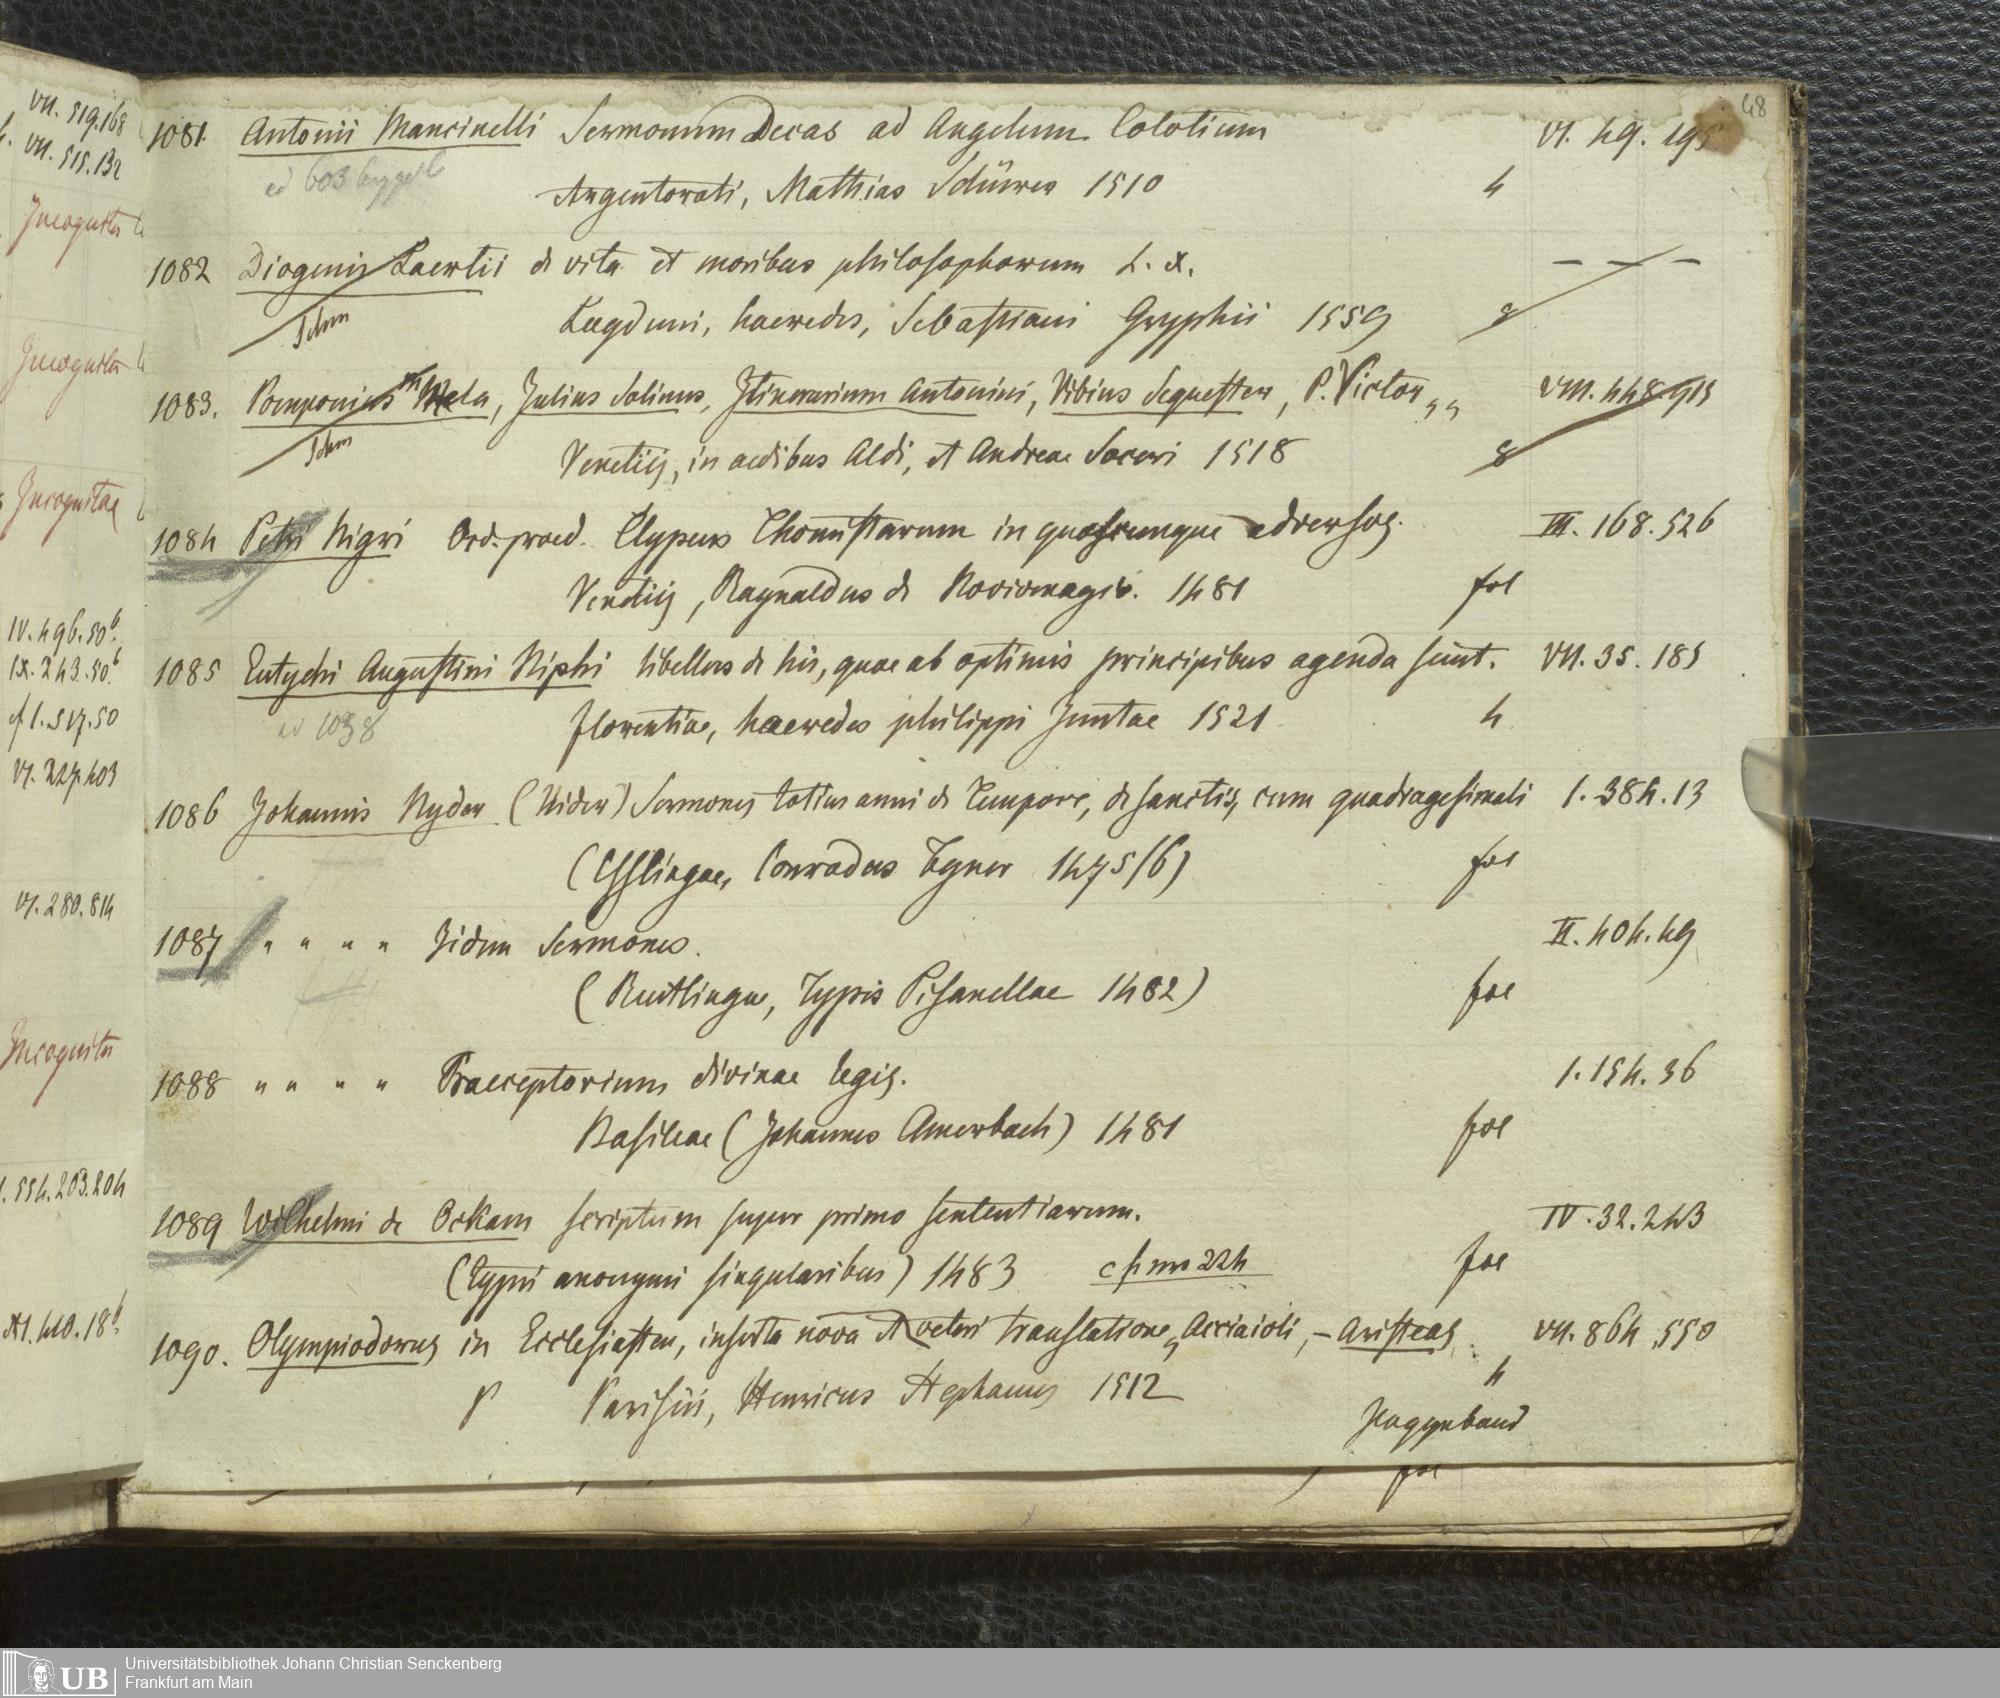 VII. 519.168
VII. 515.132
Incognita
Incognita
Incognitae
IV. 496.50b.
IX. 243.50b.
cf I. 517.50
VI. 327.403
VI. 280.814
Incognita
I. 554.203.204
XI. 410.18b.
48
1081. Antonii Mancinelli Sermonum Decas ad Angelum Colotium VI. 49. 195
ad 603
Argentorati, Mathias Schürer 1510 4
1082 Diogenis Laertii de vita et moribus philosophorum L. X. – – –
Lugduni, haeredes, Sebastiani Gryphii 1559 8
1083. Pomponius Mela, Julius Solinus, Itinerarium Antonini, Vibius Sequester, P. Victor „ VIII. 448.915
Venetiis, in aedibus Aldi, et Andreae Soceri 1518 8
1084 Petri Nigri Ord. praed. Clypeus Thomistarum in quoscumque adversos. III. 168.526
Venetiis, Raynaldus de Noviomagio. 1481 fol
1085 Eutychi Augustini Niphi libellus de his, quae ab optimis principibus agenda sunt. VII. 35. 185
ad 1038
florentiae, haeredes philippi Juntae 1521 4
1086 Johannis Nyder (Nider) Sermones totius anni de Tempore, de sanctis, cum quadragesimali I. 384.13
(Esslingae, Conradus Fyner 1475/6) fol
1087 " " " " Iidem Sermones. II. 404.49
(Reutlingae, Typis Pisanellae 1482) fol
1088 " " " " Praeceptorium divinae legis. I. 154. 36
Basileae (Johannes Amerbach) 1481 fol
1089 Wilhelmi de Ockam scriptum super primo sententiarum. IV. 32.243
(Typis anonymi singularibus) 1483 fol
1090. Olympiodorus in Ecclesiasten, inserta nova et veteri translatione, Acciaioli, – Aristeas, VII. 864.550
p Parisiis, Henricus Stephanus 1512 4
Pappeband
fol
UB
Universitätsbibliothek Johann Christian Senckenberg
Frankfurt am Main